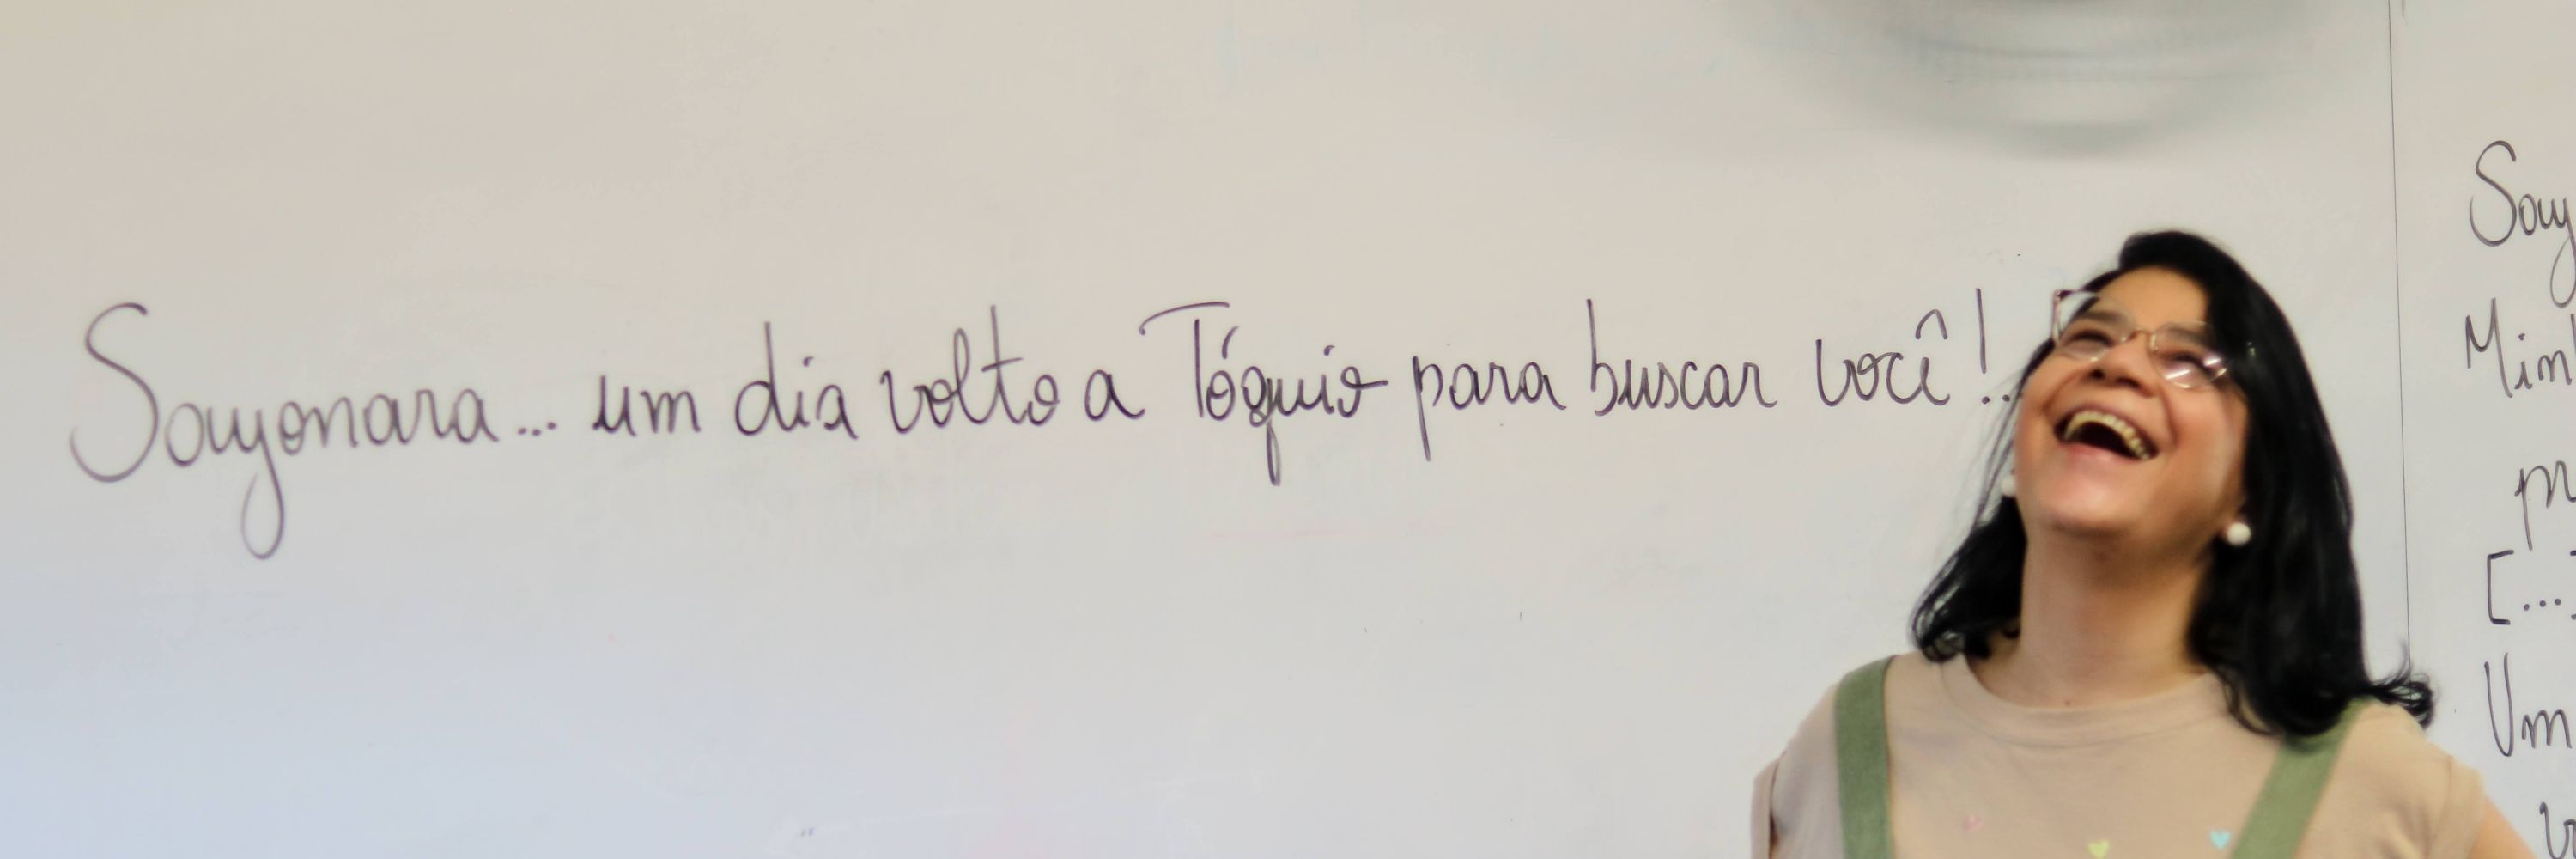 Sayonara... um dia volto a Tóquio para buscar você!..
Say
Min
[...]
Um